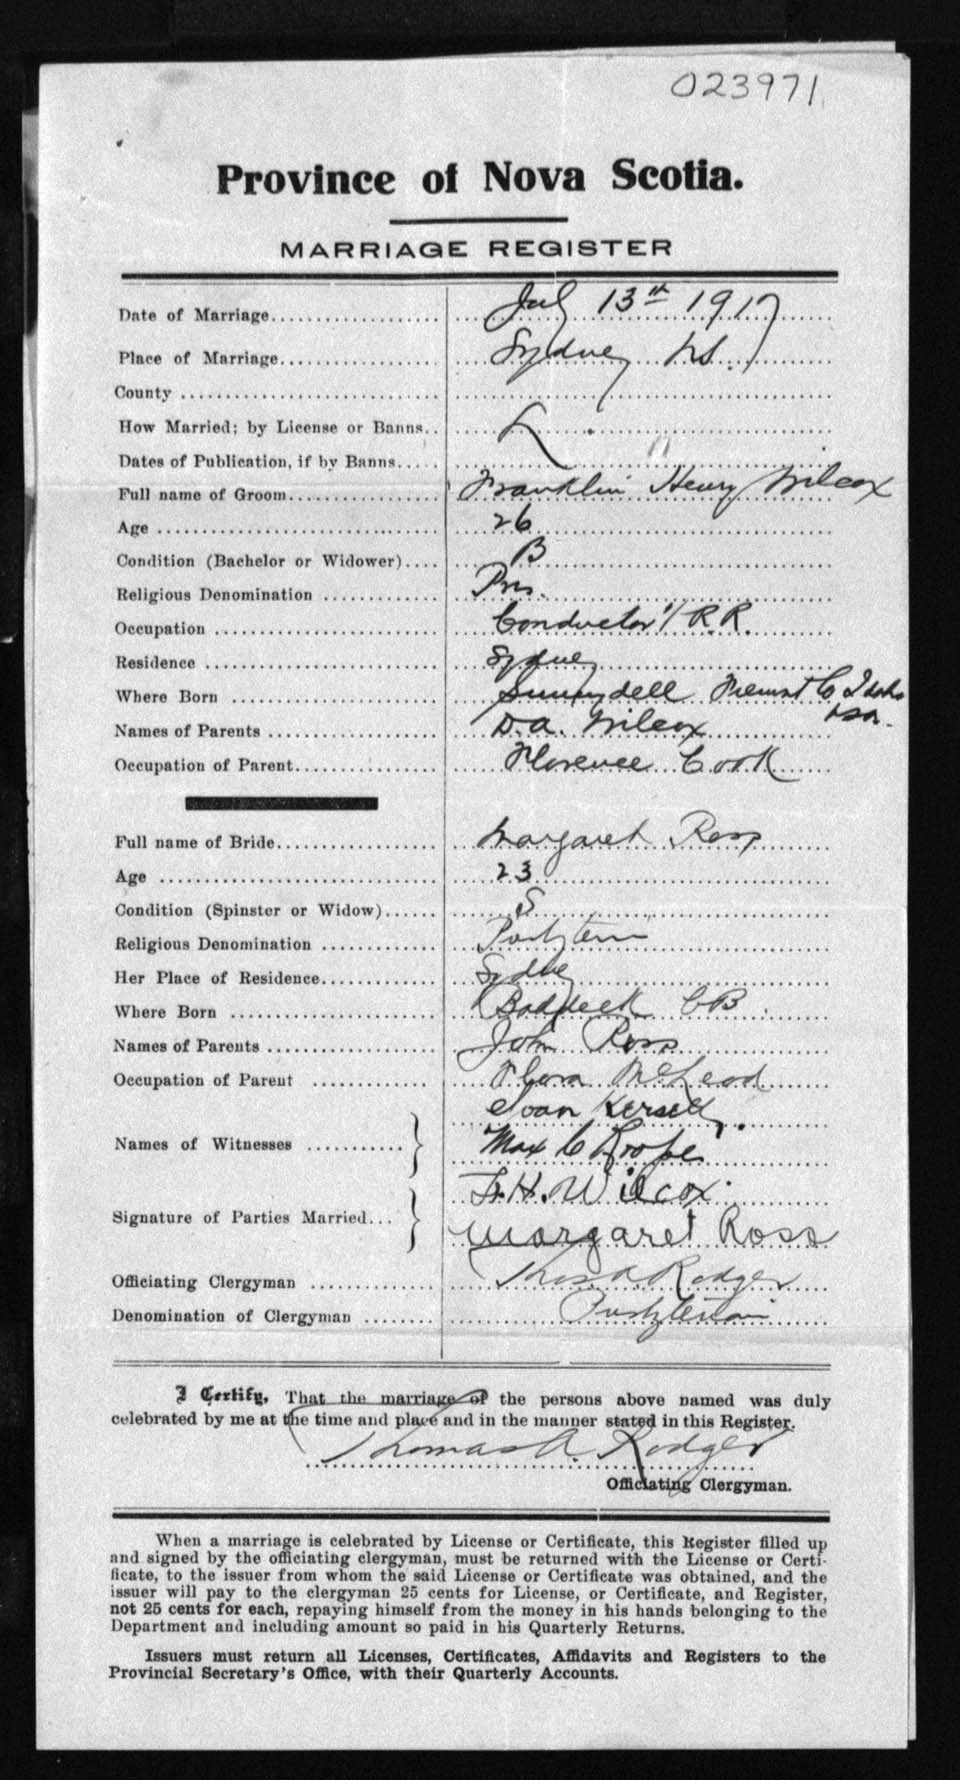 023971
Province of Nova Scotia.
MARRIAGE REGISTER
Date of Marriage................... July 13th 1917
Place of Marriage.................. Sydney NS.
County .............................
How Married; by License or Banns.. L.
Dates of Publication, if by Banns.....
Full name of Groom................. Franklin Henry Wilcox
Age ................................ 26
Condition (Bachelor or Widower).... B
Religious Denomination ............. Pres.
Occupation ......................... Conductor R.R.
Residence .......................... Sydney
Where Born ........................ Sunnydell Fremont Co Idaho
USA.
Names of Parents ................... D.A. Wilcox
Occupation of Parent................ Florence Cook
Full name of Bride.................. Margaret Ross
Age ................................ 23
Condition (Spinster or Widow)...... S
Religious Denomination .............
Her Place of Residence............. Sydney
Where Born ........................ Baddeck CB.
Names of Parents ................... John Ross
Occupation of Parent .............. Flora McLeod
Joan
Names of Witnesses ........... Max C
F.H. Wilcox.
Signature of Parties Married... Margaret Ross
Officiating Clergyman .............. Thos A Rodger
Denomination of Clergyman ........ Presbyterian
I Certify, That the marriage of the persons above named was duly
celebrated by me at the time and place and in the manner stated in this Register.
Thomas A. Rodger
Officiating Clergyman.
When a marriage is celebrated by License or Certificate, this Register filled up
and signed by the officiating clergyman, must be returned with the License or Certi-
ficate, to the issuer from whom the said License or Certificate was obtained, and the
issuer will pay to the clergyman 25 cents for License, or Certificate, and Register,
not 25 cents for each, repaying himself from the money in his hands belonging to the
Department and including amount so paid in his Quarterly Returns.
Issuers must return all Licenses, Certificates, Affidavits and Registers to the
Provincial Secretary's Office, with their Quarterly Accounts.